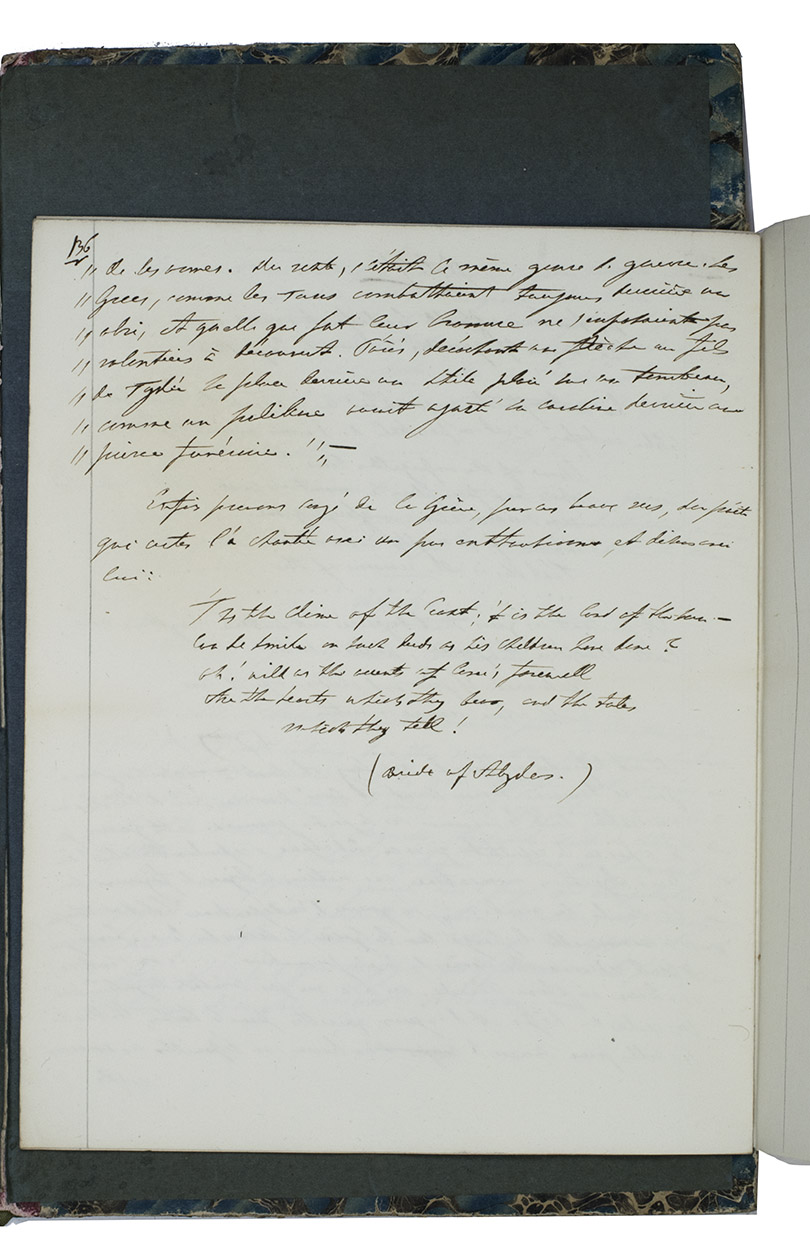 136
" de les armes. Du reste, c'était le même genre de guerre. Les
" Grecs, comme les Turcs combattaient toujours derrière un
" abri, et quelle que fut leur bravoure ne s'exposaient pas
" volontiers à découvert. Pâris, décochant une flèche au fils
" de Tydée se place derrière un stèle placé sur un tombeau,
" comme un palikare aurait ajusté sa carabine derrière une
" pierre funéraire. " —
Enfin prenons congé de la Grèce, par ces beaux vers, du poète
qui certes l'a chanté avec un peu enthousiasme, et disons avec
lui :
'T is the clime of the East; 't is the land of the Sun —
Can he smile on such deeds as his children have done?
Oh! wild as the accents of lover's farewell
Are the hearts which they bear, and the tales
which they tell!
(Bride of Abydos.)